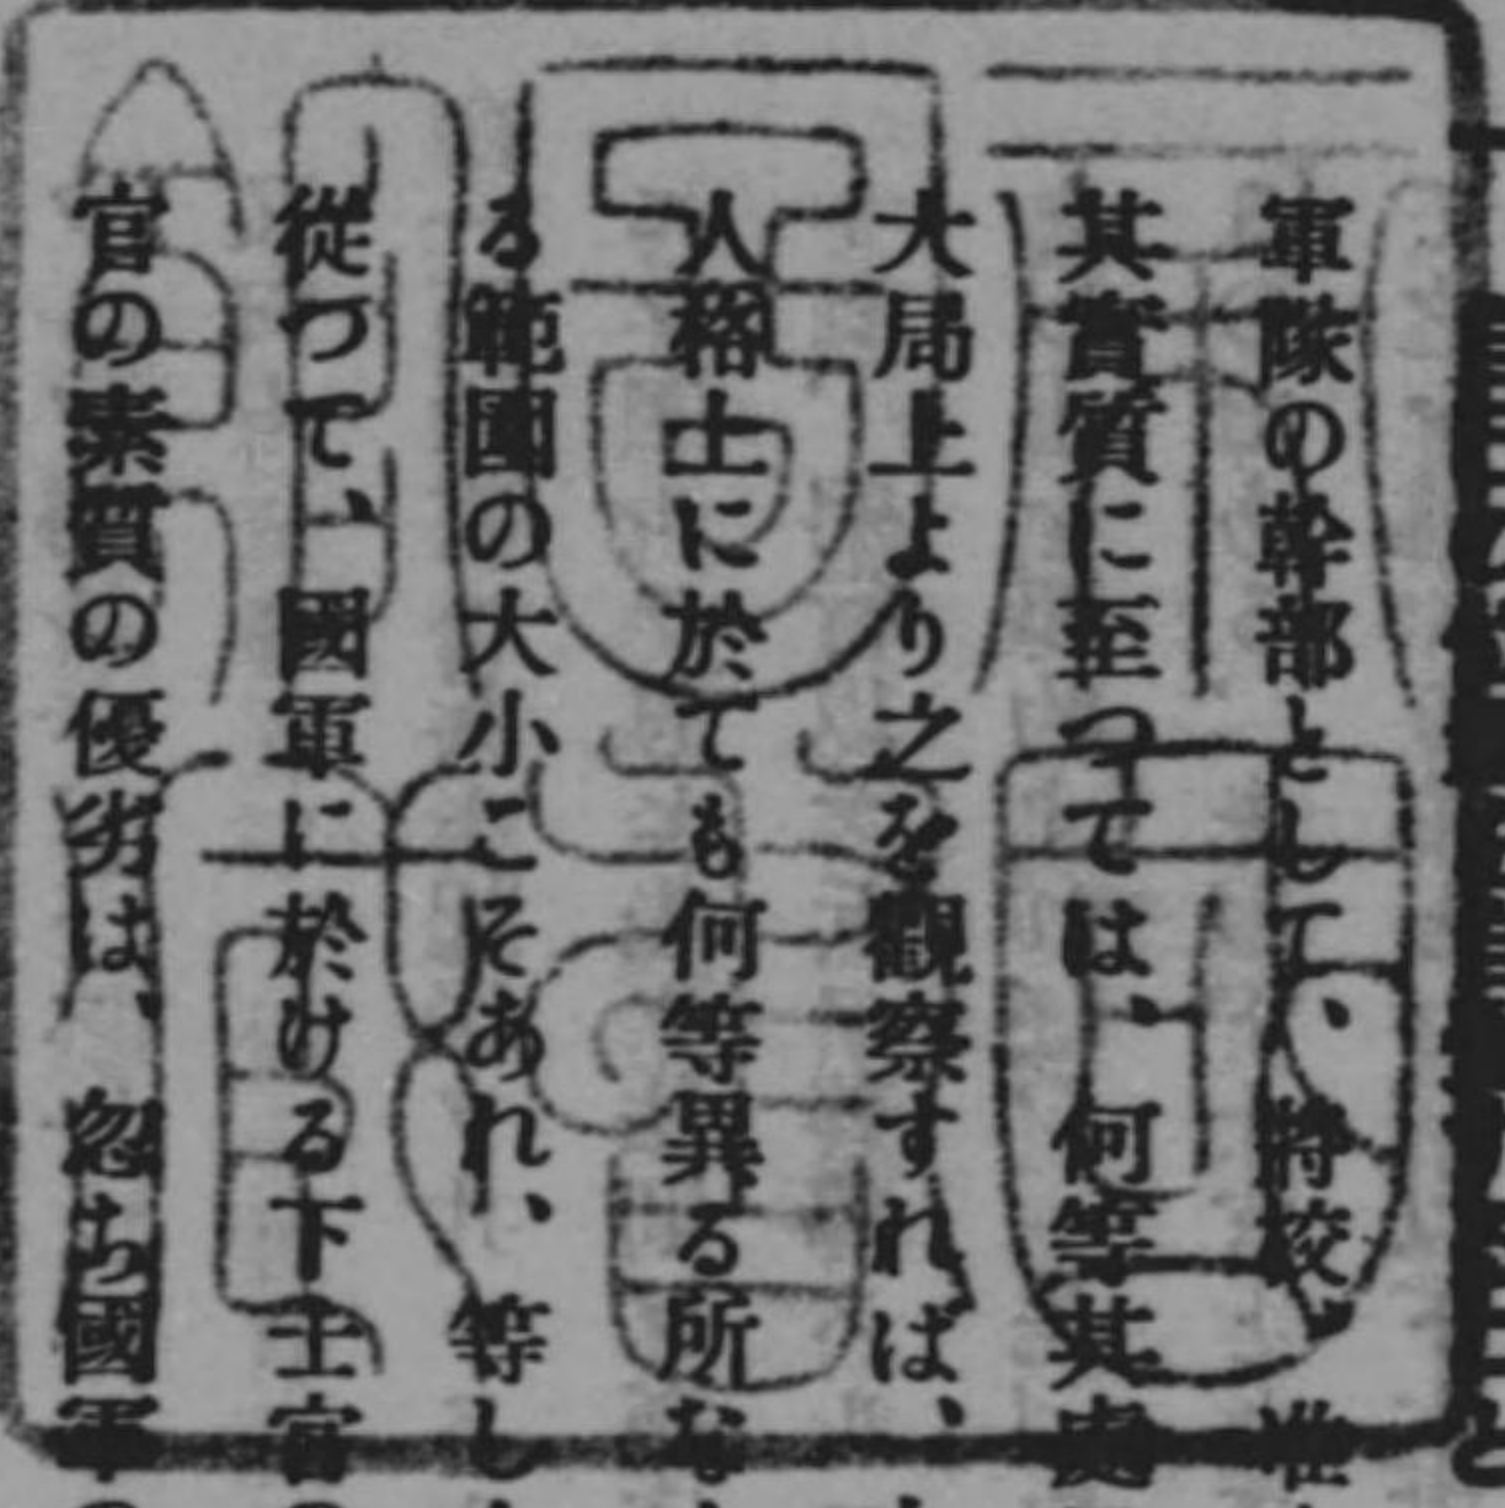 軍隊の幹部として、將校、准
其實質に至つては、何等其處
大局上より之を觀察すれば、
人格上に於ても何等異る所な
る範圍の大小こそあれ、等し
從つて、國軍に於ける下士官
官の素質の優劣は、忽ち國軍